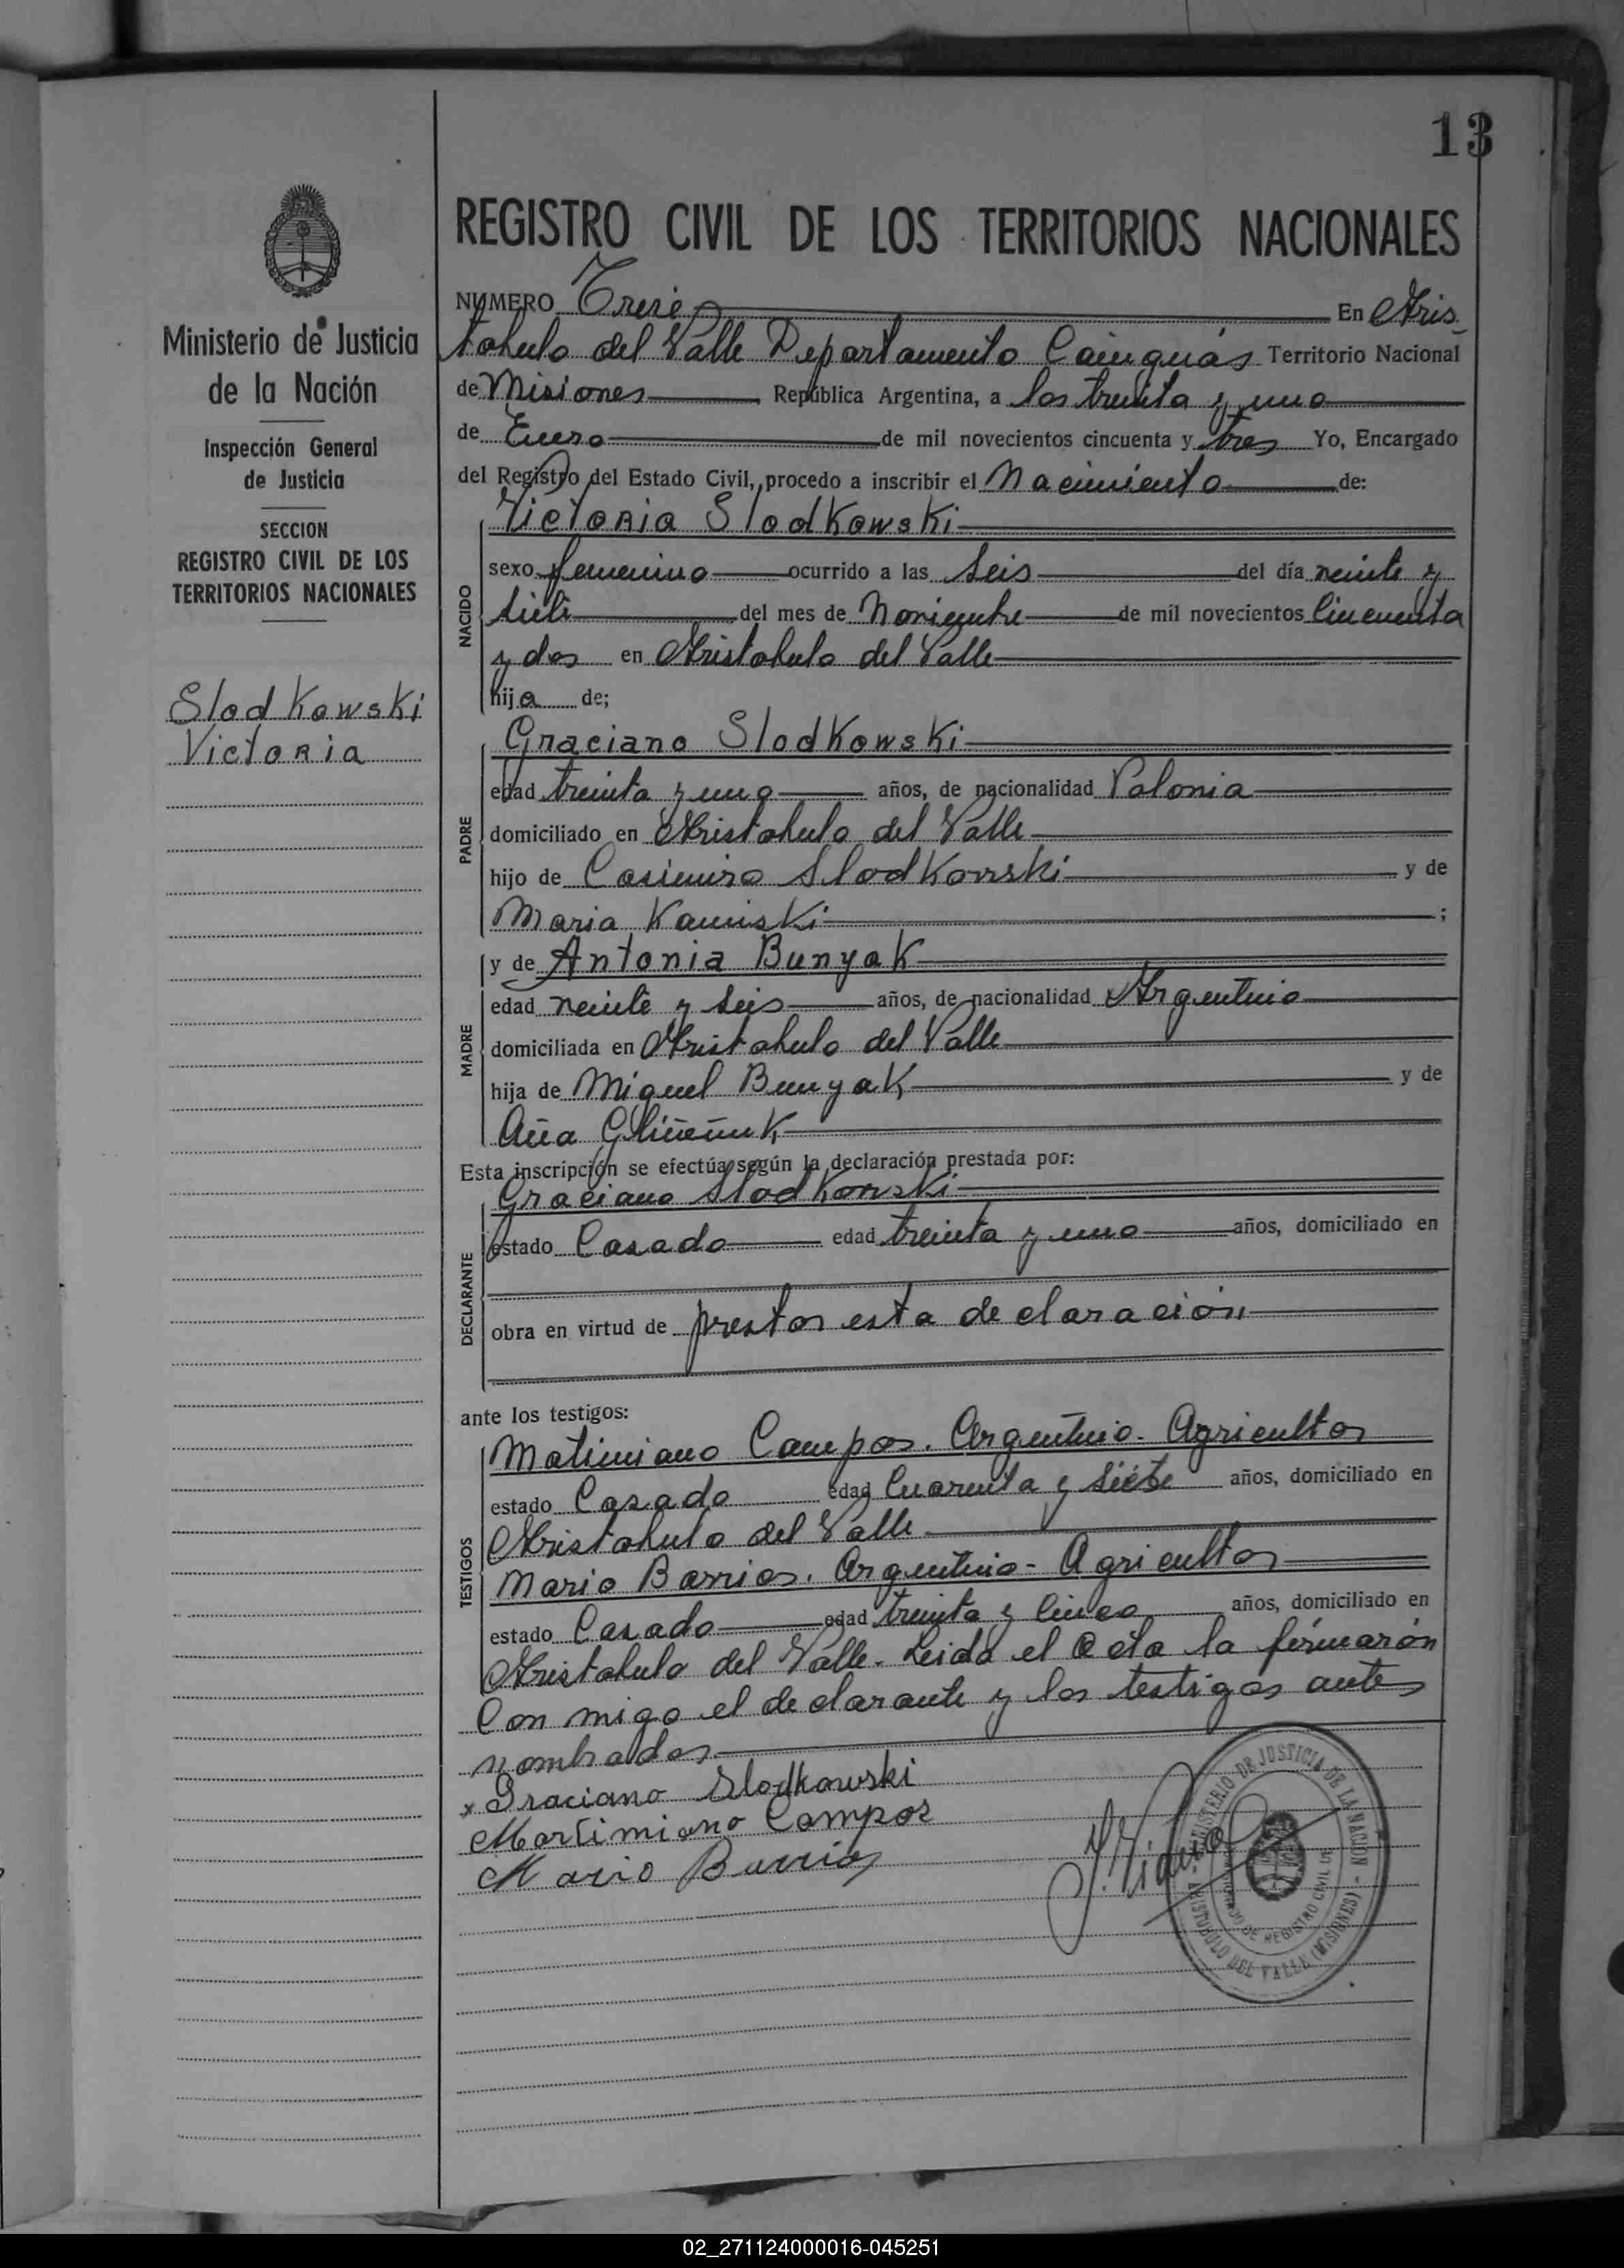 13
Ministerio de Justicia
de la Nación
Inspección General
de Justicia
SECCION
REGISTRO CIVIL DE LOS
TERRITORIOS NACIONALES
Slodkowski
Victoria
REGISTRO CIVIL DE LOS TERRITORIOS NACIONALES
NUMERO Trece En Aris
tobulo del Valle Departamento Cainguás Territorio Nacional
de Misiones República Argentina, a los treinta y uno
de Enero de mil novecientos cincuenta y tres Yo, Encargado
del Registro del Estado Civil, procedo a inscribir el Nacimiento de:
NACIDO
Victoria Slodkowski
sexo femenino ocurrido a las seis del día veinte y
siete del mes de Noviembre de mil novecientos Cincuenta
y dos en Aristobulo del Valle
hija de;
PADRE
Graciano Slodkowski
edad treinta y uno años, de nacionalidad Polonia
domiciliado en Aristobulo del Valle
hijo de Casimiro Slodkowski y de
Maria Kaminski ;
MADRE
y de Antonia Bunyak
edad veinte y seis años, de nacionalidad Argentino
domiciliada en Aristobulo del Valle
hija de Miguel Bunyak y de
Ana
Esta inscripción se efectúa según la declaración prestada por:
DECLARANTE
Graciano Slodkowski
estado Casado edad treinta y uno años, domiciliado en
obra en virtud de prestar esta declaración
ante los testigos:
TESTIGOS
Matimiano Campos. Argentino. Agricultor
estado Casado edad Cuarenta y siete años, domiciliado en
Aristobulo del Valle
Mario Barrios. Argentino - Agricultor
estado Casado edad treinta y cinco años, domiciliado en
Aristobulo del Valle. Leida el Acta la firmarón
Con migo el declarante y los testigos antes
nombrados
x Graciano Slodkowski
Martimiano Campos
Mario Barrios
MINISTERIO DE JUSTICIA DE LA NACION
ENCARGADO DE REGISTRO CIVIL DE
ARISTOBULO DEL VALLE (MISIONES)
02_271124000016-045251